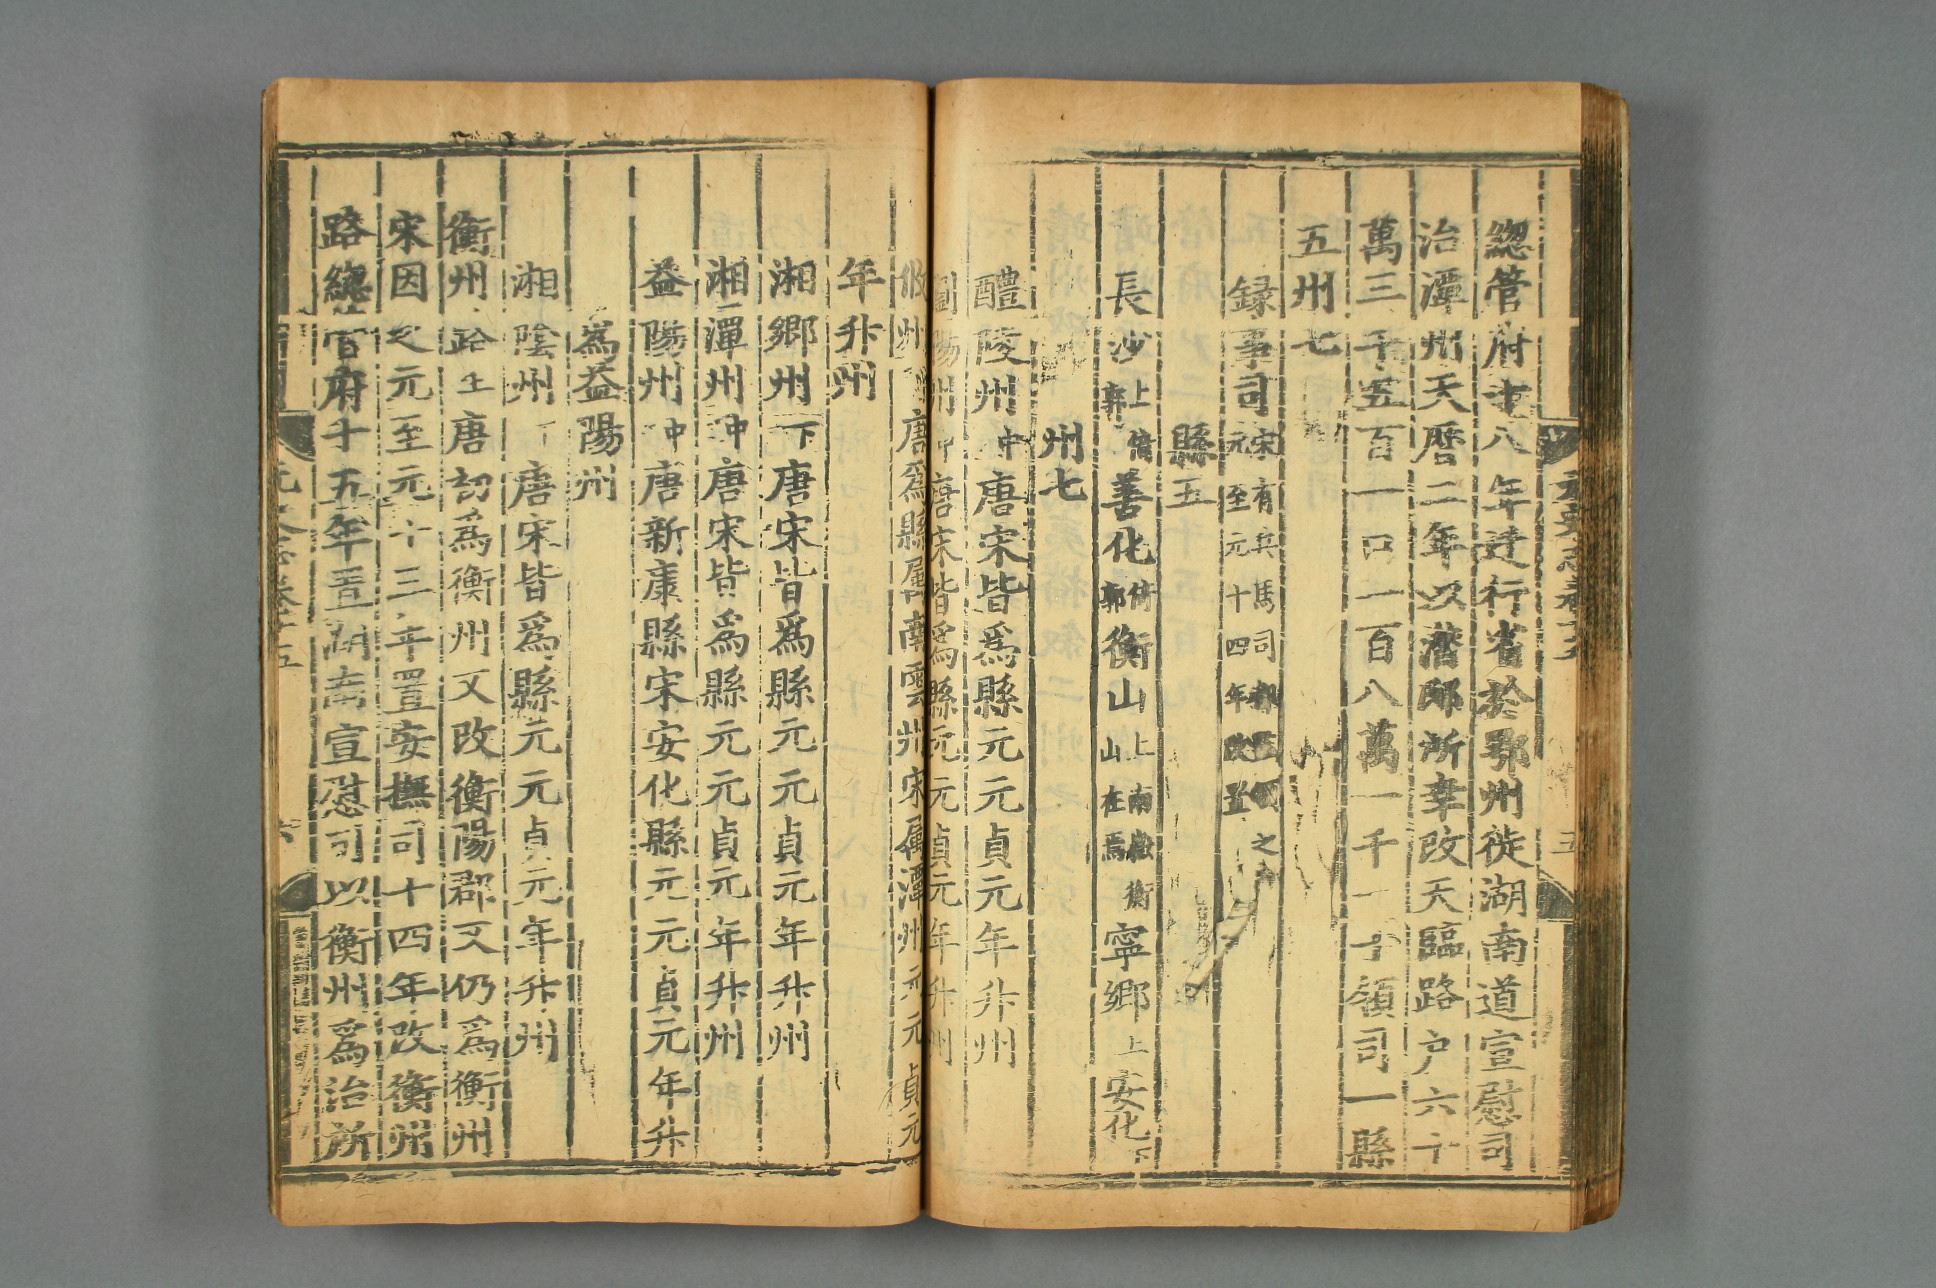 總管府十八年遷行省於鄂州徙湖南道宣慰司
治潭州天曆二年以潛邸所幸改天臨路户六十
萬三千五百一口一百八萬一千一十領司一縣
五州七
録事司宋有兵馬司都監領之
元至元十四年改置
縣五
長沙上倚郭善化倚郭衡山上南嶽衡山在焉寧鄉上安化下
州七
醴陵州中唐宋皆爲縣元元貞元年升州
瀏陽州中唐宋皆爲縣元元貞元年升州
攸州中唐爲縣屬南雲州宋屬潭州元元貞元
年升州
湘鄉州下唐宋皆爲縣元元貞元年升州
湘潭州中唐宋皆爲縣元元貞元年升州
益陽州中唐新康縣宋安化縣元元貞元年升
爲益陽州
湘陰州下唐宋皆爲縣元元貞元年升州
衡州路上唐初爲衡州又改衡陽郡又仍爲衡州
宋因之元至元十三年置安撫司十四年改衡州
路總管府十五年置湖南宣慰司以衡州爲治所